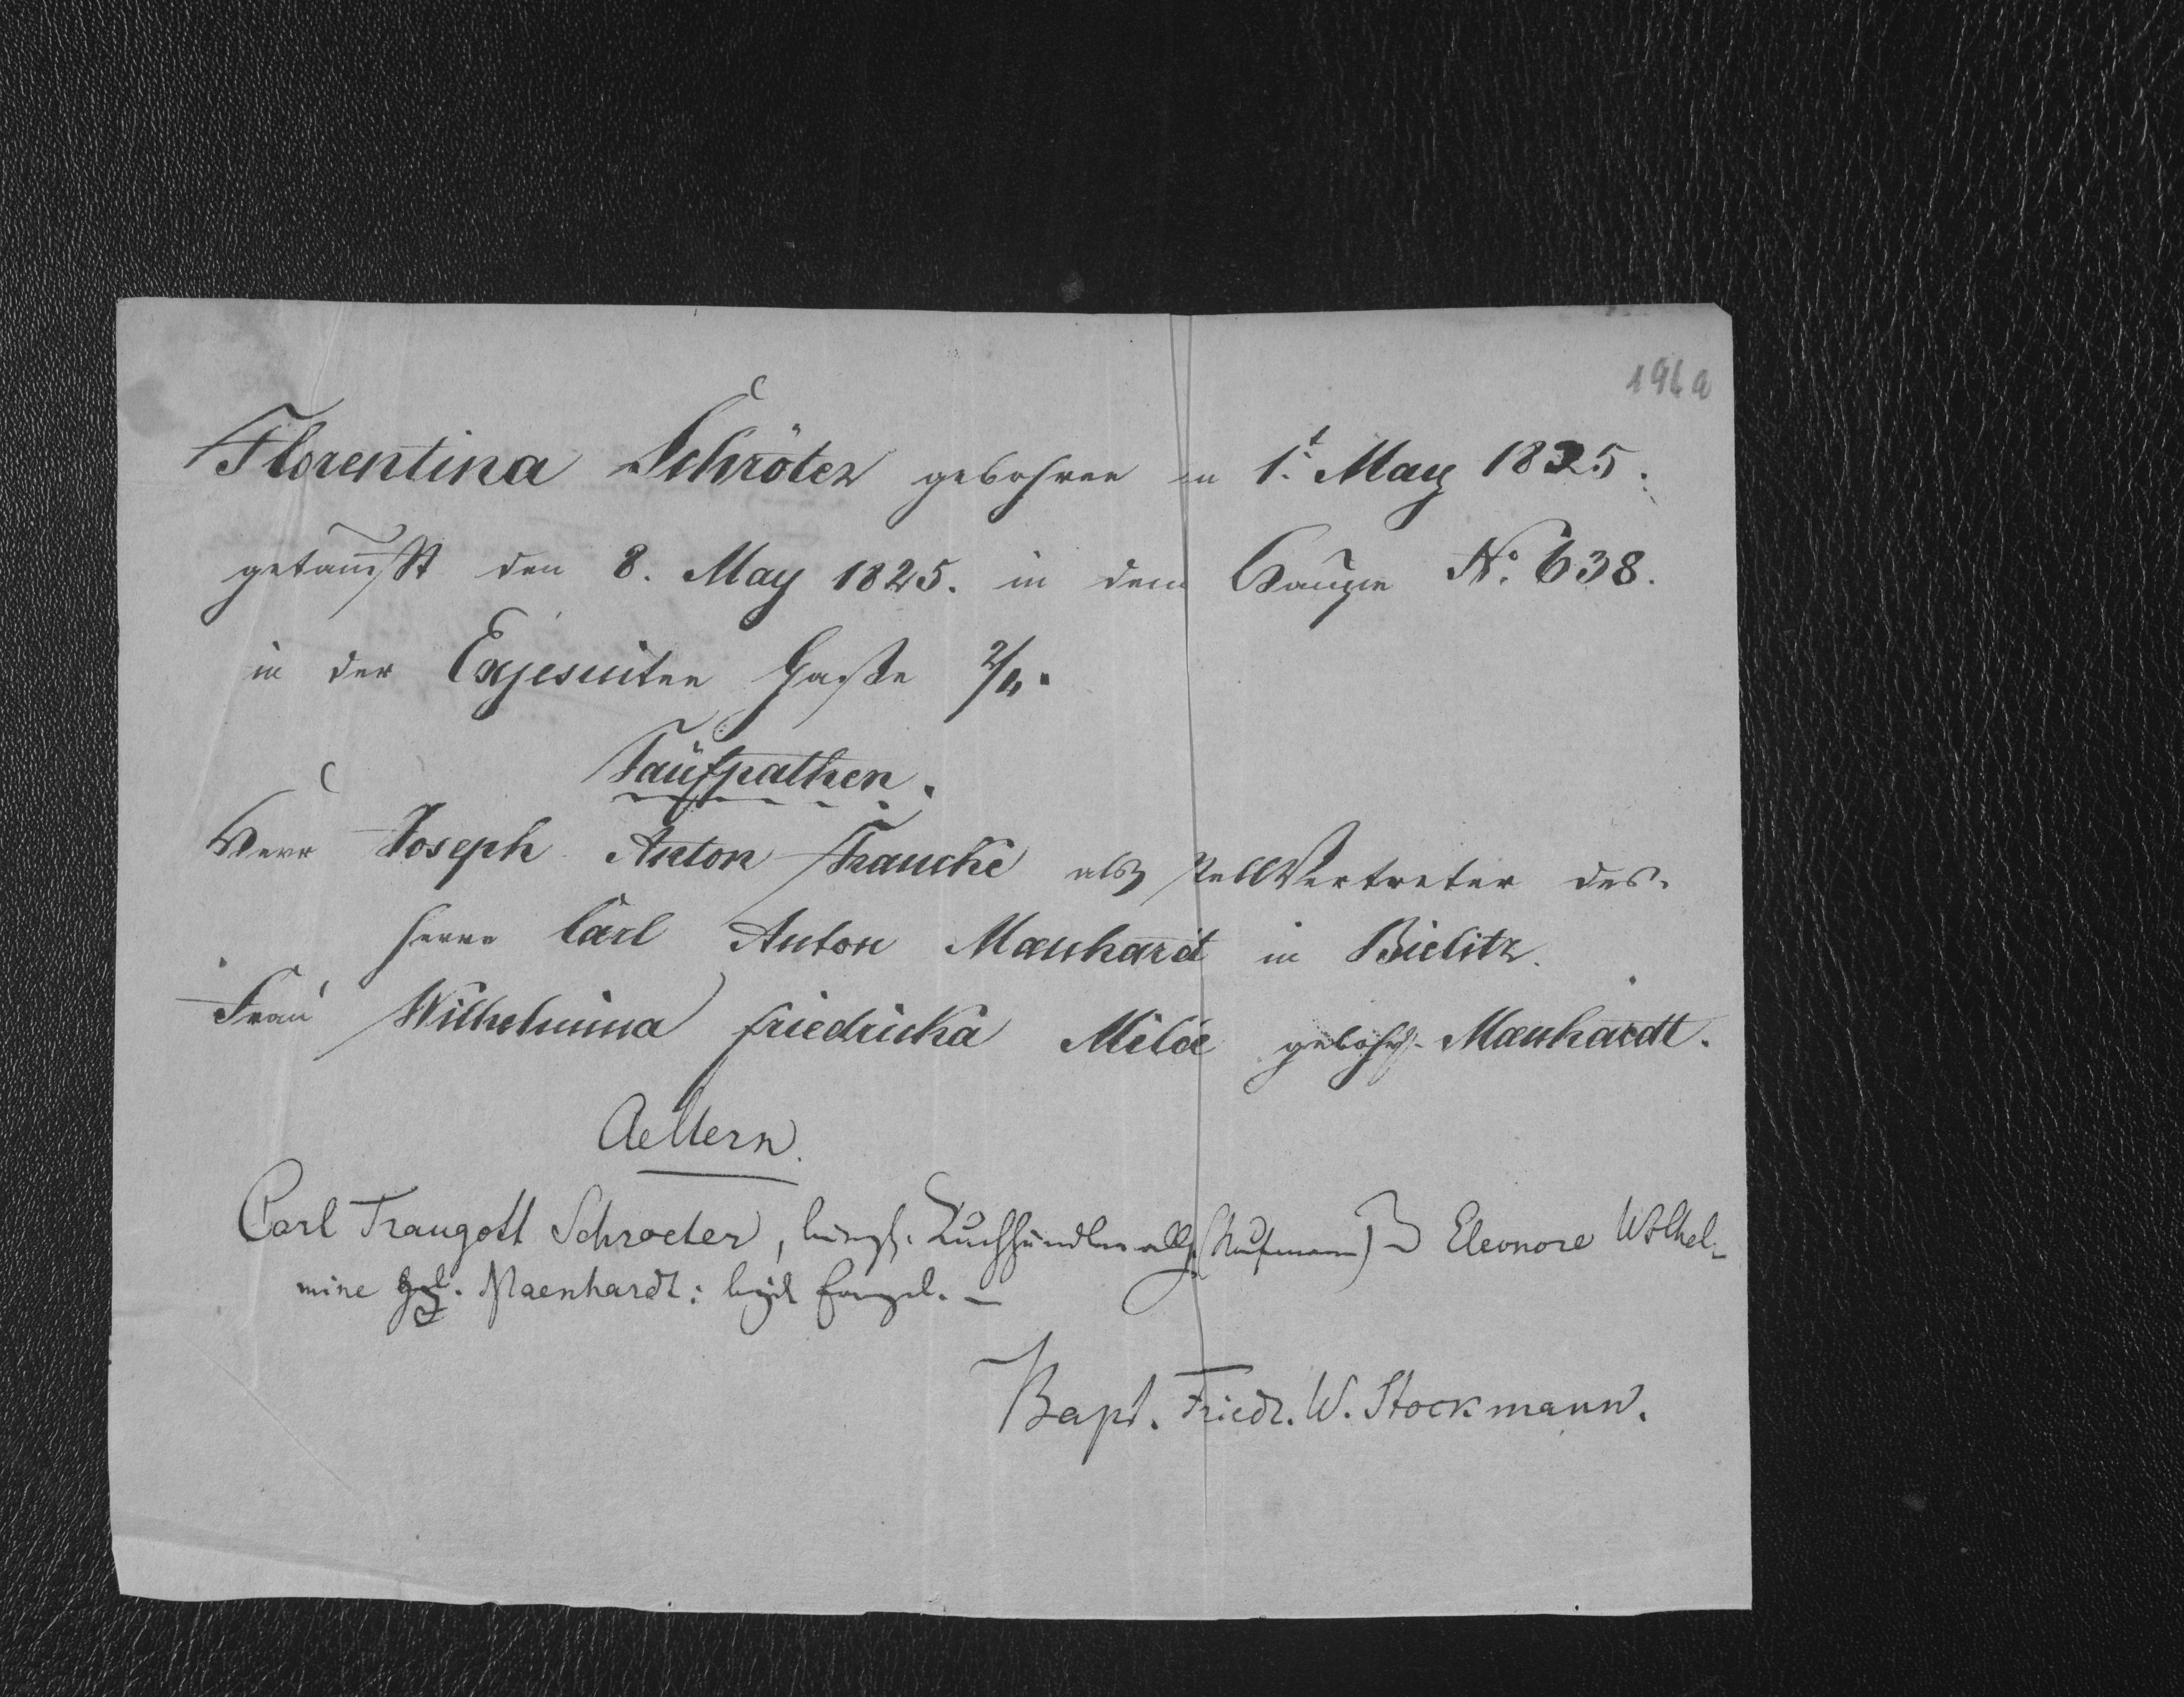 196a
Florentina Schröter gebohren den 1t May 1825.
getaufft den 8. May 1825. in dem Hauße No. 638.
in der Exjesuiten Gaße 2/4.
Taüfpathen.
Herr Joseph Anton Francke als StellVertreter des
Herrn Carl Anton Mänhardt in Bielitz.
Frau Wilhelmina Friedricka Milde gebohr. Mänhardt.
Aeltern.
Carl Traugott Schroeter, bürgl. Tuchhändler allh. (Kaufmann) Eleonore Wilhel-
mine geb. Maenhardt: beyde Evangel. —
Bapt. Friedr. W. Stockmann.